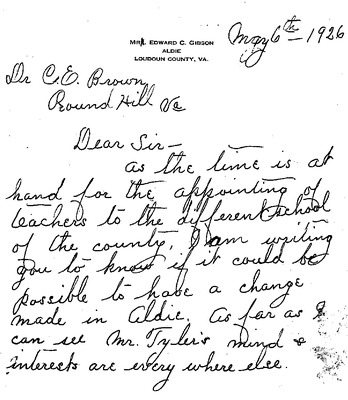 Mrs. Edward C. Gibson
Aldie
Loudoun County, Va.
May 6th - 1926
Dr C. E. Brown,
Round Hill Va
Dear Sir -
as the time is at
hand for the appointing of
teachers to the different school
of the county, I am writing
you to know if it could be
possible to have a change
made in Aldie. As far as I
can see Mr. Tyler's mind &
interests are every where else.